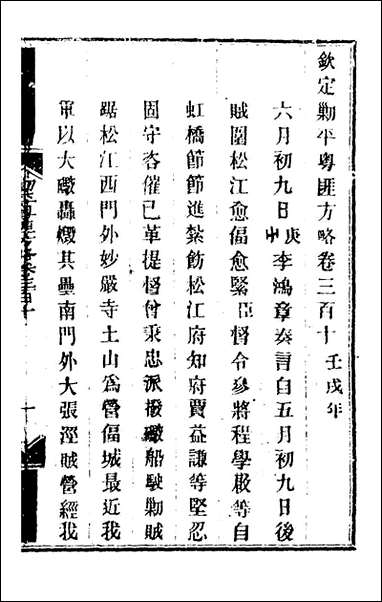 欽定勦平粵匪方略卷三百十 壬戌年
六月初九日庚申李鴻章奏言自五月初九日後
賊圍松江愈偪愈緊臣督令參將程學啟等自
虹橋節節進紮飭松江府知府賈益謙等堅忍
固守咨催已革提督曾秉忠派撥礮船駛勦賊
踞松江西門外妙嚴寺土山爲營偪城最近我
軍以大礮轟燬其壘南門外大張涇賊營經我